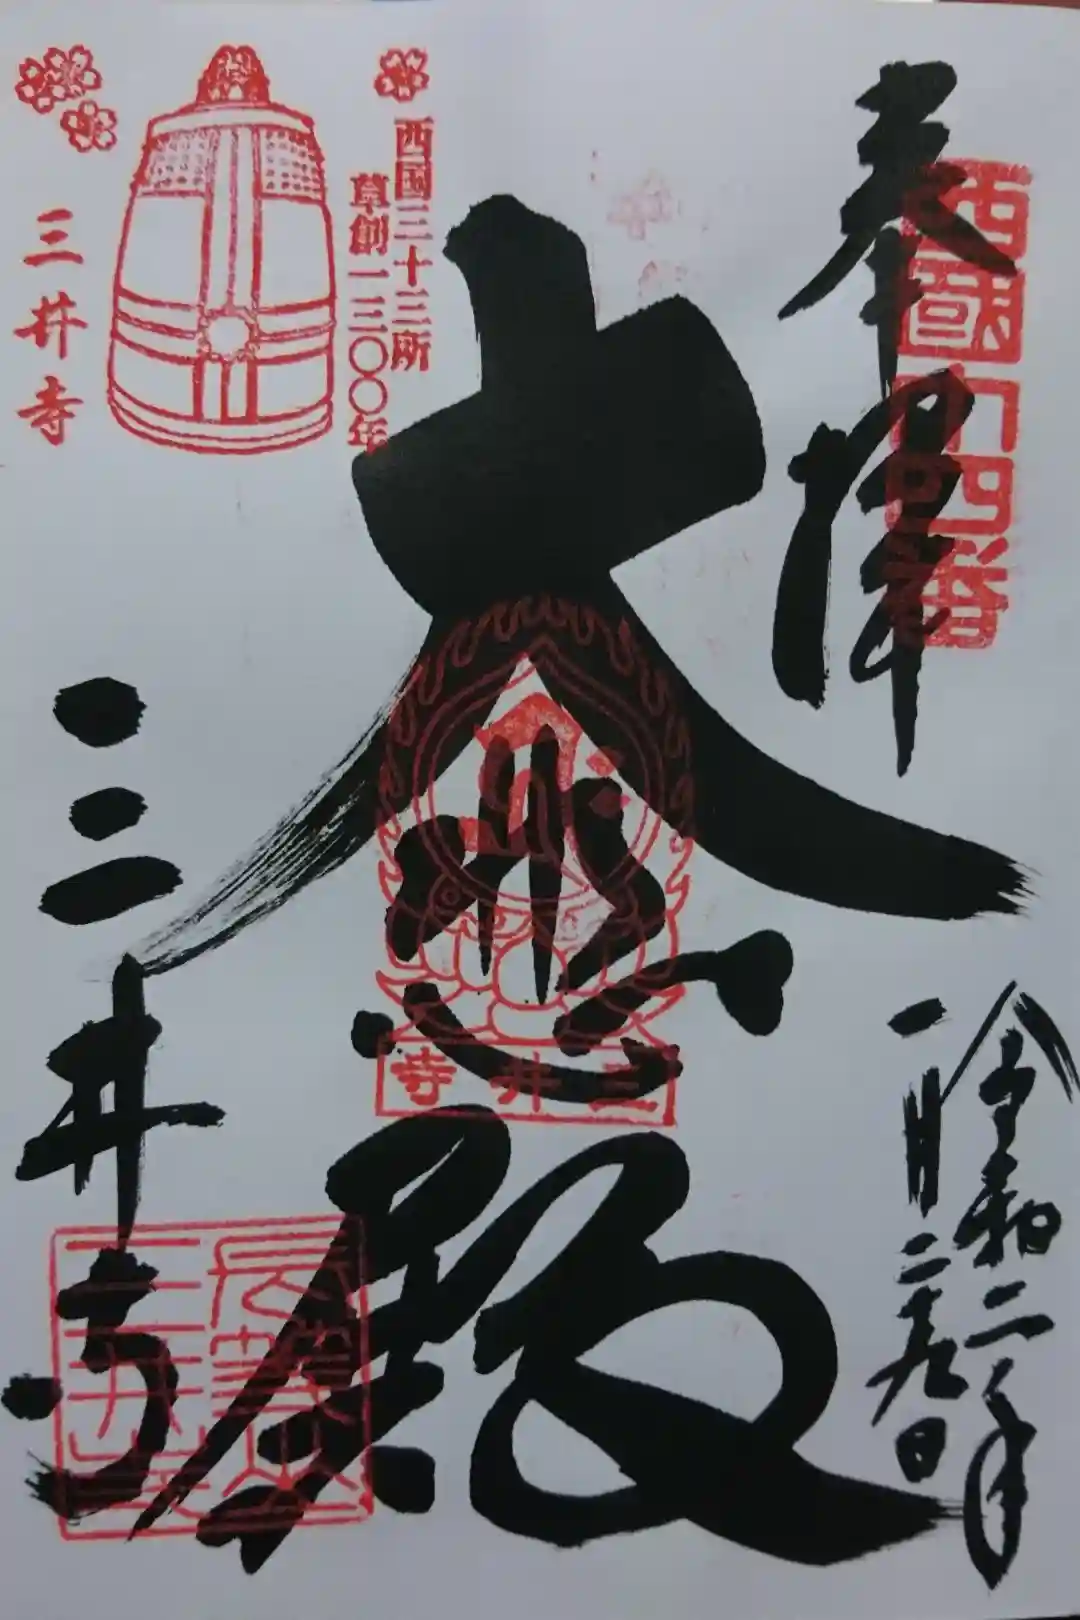 奉拝
西國十四番
令和二年
一月二十九日
大悲殿
三井寺
西国三十三所
草創一三〇〇年
三井寺
三井寺
長等山
三井寺